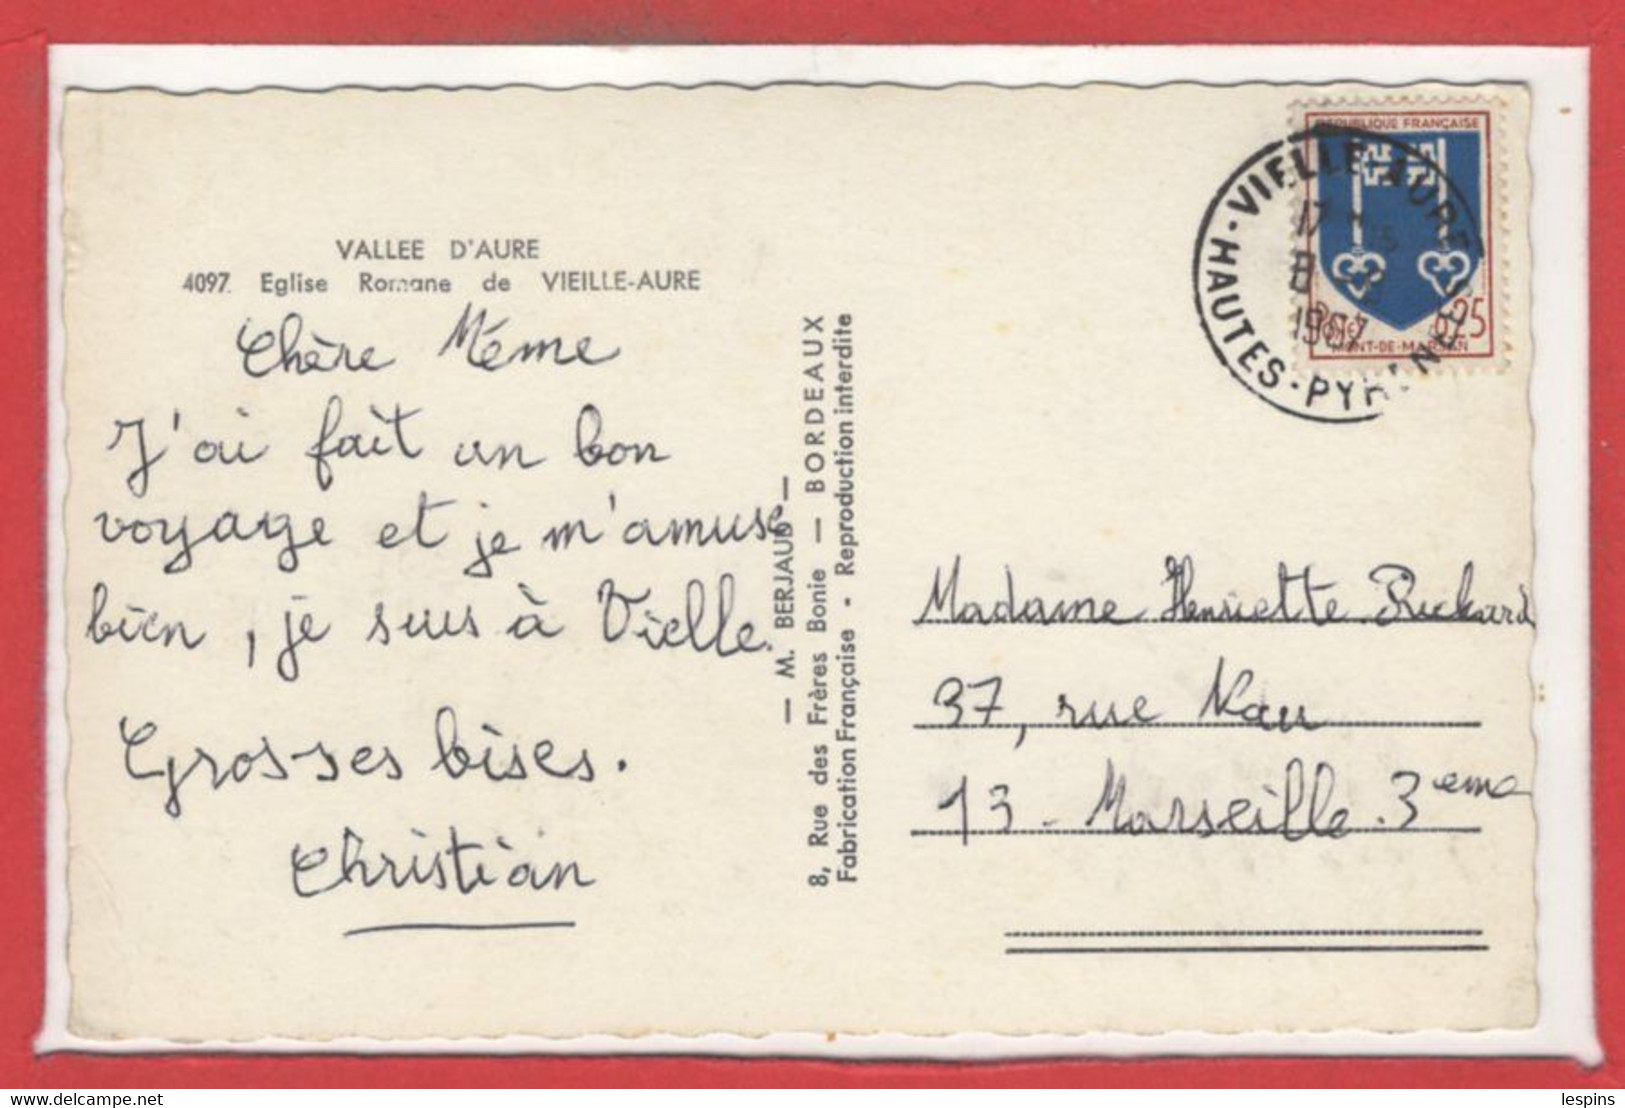 VALLEE D'AURE
4097. Eglise Romane de VIEILLE-AURE
Chère Mémé
J'ai fait un bon
voyage et je m'amuse
bien, je suis à Vielle.
Grosses bises.
Christian
— M. BERJAUD —
8, Rue des Frères Bonie — BORDEAUX
Fabrication Française - Reproduction interdite
REPUBLIQUE FRANÇAISE
Postes 0,25
MONT-DE-MARSAN
VIELLE-AURE
17
8
1967
HAUTES-PYRÉNÉES
Madame Henriette
37, rue Nau
13 - Marseille. 3eme
www.delcampe.net
lespins